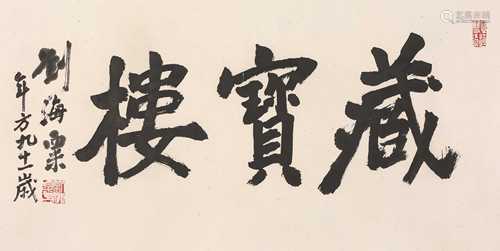 藏寶樓
劉海粟
年方九十一歲